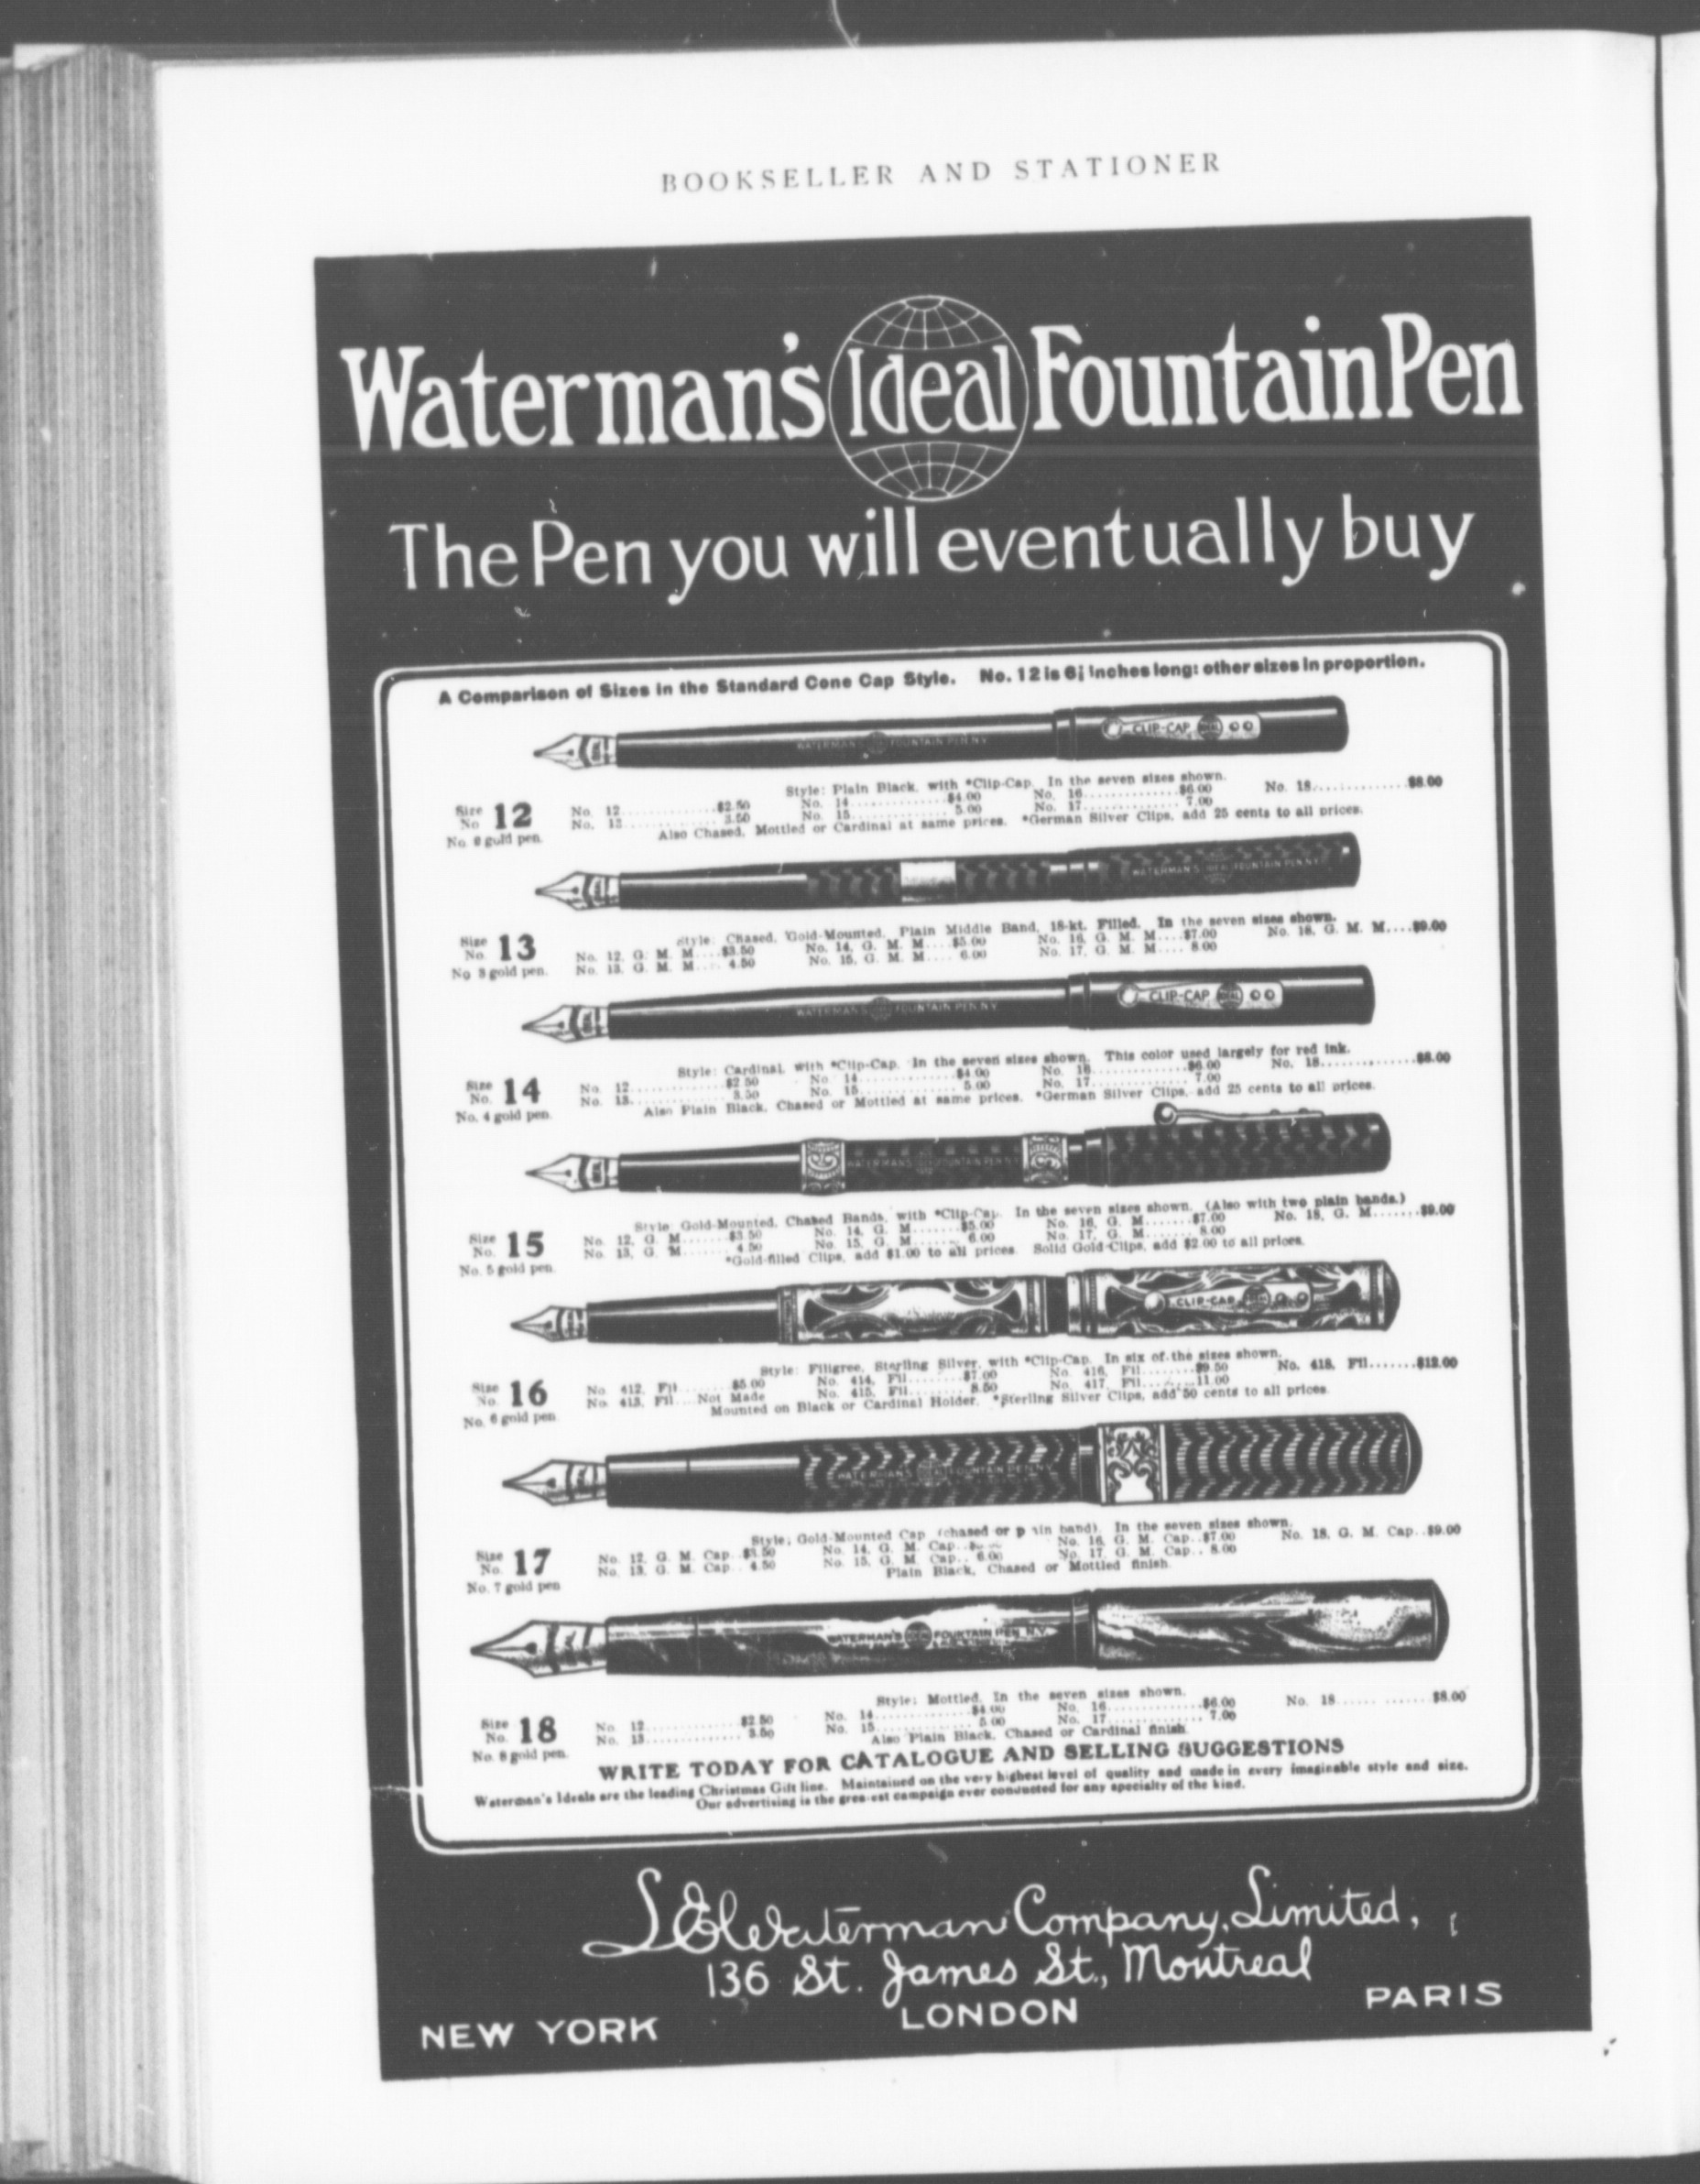 BOOKSELLER AND STATIONER
Waterman's Ideal Fountain Pen
The Pen you will eventually buy
A Comparison of Sizes in the Standard Cone Cap Style. No. 12 is 6¼ inches long: other sizes in proportion.
WATERMAN'S IDEAL FOUNTAIN PEN N.Y. CLIP-CAP
Style: Plain Black, with *Clip-Cap. In the seven sizes shown.
Size No. 12
No. 12............$2.50 No. 14............$4.00 No. 16............$6.00 No. 18............$8.00
No. 13............3.50 No. 15............5.00 No. 17............7.00
No. 2 gold pen. Also Chased, Mottled or Cardinal at same prices. *German Silver Clips, add 25 cents to all prices.
WATERMAN'S IDEAL FOUNTAIN PEN N.Y.
Style: Chased, Gold-Mounted, Plain Middle Band, 18-kt. Filled. In the seven sizes shown.
Size No. 13
No. 12, G. M. M....$3.50 No. 14, G. M. M....$5.00 No. 16, G. M. M....$7.00 No. 18, G. M. M....$9.00
No. 13, G. M. M.... 4.50 No. 15, G. M. M.... 6.00 No. 17, G. M. M.... 8.00
No 3 gold pen.
WATERMAN'S IDEAL FOUNTAIN PEN N.Y. CLIP-CAP
Style: Cardinal, with *Clip-Cap. In the seven sizes shown. This color used largely for red ink.
Size No. 14
No. 12............$2.50 No 14............$4.00 No. 16............$6.00 No. 18............$8.00
No. 13............ 3.50 No. 15............ 5.00 No. 17............ 7.00
No. 4 gold pen. Also Plain Black, Chased or Mottled at same prices. *German Silver Clips, add 25 cents to all prices.
WATERMAN'S IDEAL FOUNTAIN PEN N.Y.
Style Gold-Mounted, Chased Bands, with *Clip-Cap. In the seven sizes shown. (Also with two plain bands.)
Size No. 15
No. 12, G. M.......$3.50 No. 14, G. M.......$5.00 No. 16, G. M.......$7.00 No. 18, G. M.......$9.00
No. 13, G. M....... 4.50 No. 15, G. M....... 6.00 No. 17, G. M....... 8.00
No. 5 gold pen. *Gold-filled Clips, add $1.00 to all prices. Solid Gold Clips, add $2.00 to all prices.
CLIP-CAP
Style: Filigree, Sterling Silver, with *Clip-Cap. In six of the sizes shown.
Size No. 16
No 412, Fil........$5.00 No. 414, Fil........$7.00 No. 416, Fil........$9.50 No. 418, Fil.......$12.00
No. 413, Fil....Not Made No. 415, Fil........ 8.50 No. 417, Fil........11.00
No. 6 gold pen. Mounted on Black or Cardinal Holder. *Sterling Silver Clips, add 50 cents to all prices.
WATERMAN'S IDEAL FOUNTAIN PEN N.Y.
Style: Gold-Mounted Cap (chased or plain band). In the seven sizes shown.
Size No. 17
No. 12, G. M. Cap..$3.50 No. 14, G. M. Cap.. No. 16, G. M. Cap..$7.00 No. 18, G. M. Cap..$9.00
No. 13, G. M. Cap.. 4.50 No. 15, G. M. Cap.. 6.00 No. 17, G. M. Cap.. 8.00
No. 7 gold pen Plain Black, Chased or Mottled finish.
WATERMAN'S IDEAL FOUNTAIN PEN N.Y.
Style: Mottled. In the seven sizes shown.
Size No. 18
No. 12............$2.50 No. 14............$4.00 No. 16............$6.00 No. 18............$8.00
No. 13............ 3.50 No. 15............ 5.00 No. 17............ 7.00
No. 8 gold pen. Also Plain Black, Chased or Cardinal finish.
WRITE TODAY FOR CATALOGUE AND SELLING SUGGESTIONS
Waterman's Ideals are the leading Christmas Gift line. Maintained on the very highest level of quality and made in every imaginable style and size.
Our advertising is the greatest campaign ever conducted for any specialty of the kind.
L E Waterman Company, Limited,
136 St. James St., Montreal
NEW YORK LONDON PARIS